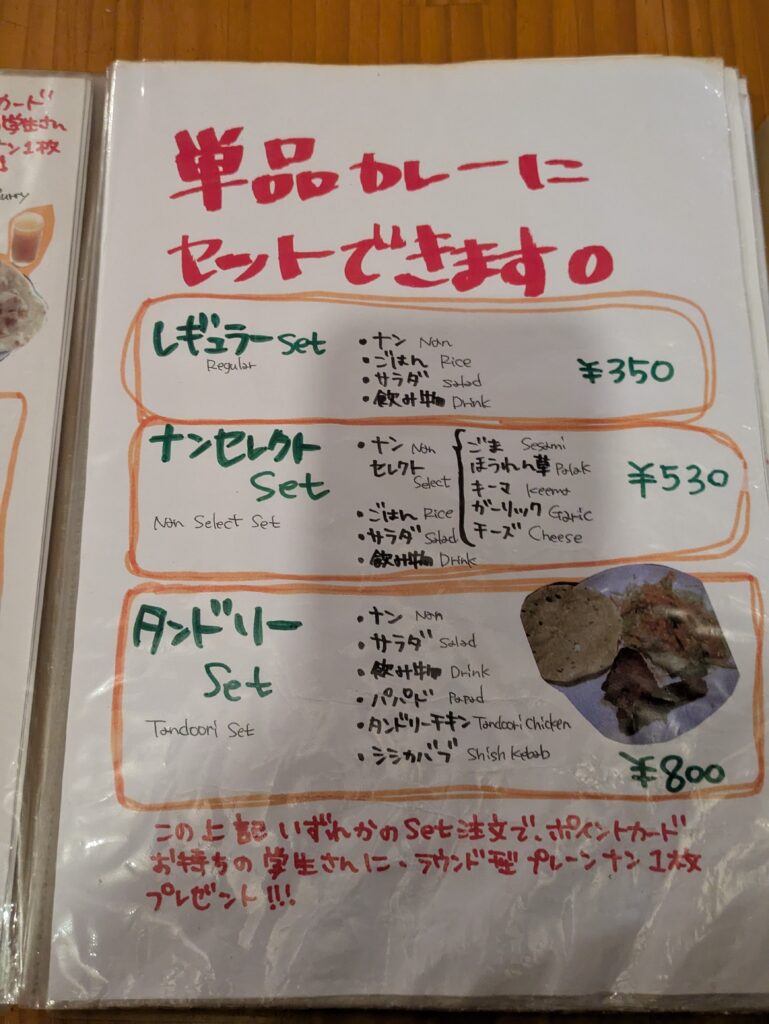 カード
学生さん
ン1枚
urry
単品カレーに
セットできます。
レギュラーSet
Regular
・ナン Nan
・ごはん Rice
・サラダ Salad
・飲み物 Drink
¥350
ナンセレクト
Set
Nan Select Set
・ナン Nan
セレクト Select
ごま Sesami
ほうれん草 Palak
キーマ Keema
ガーリック Garic
チーズ Cheese
・ごはん Rice
・サラダ Salad
・飲み物 Drink
¥530
タンドリー
Set
Tandoori Set
・ナン Nan
・サラダ Salad
・飲み物 Drink
・パパド Papad
・タンドリーチキン Tandoori Chicken
・シシカバブ Shish Kebab
¥800
この上記いずれかのSet注文で、ポイントカード
お持ちの学生さんに、ラウンド型プレーンナン1枚
プレゼント!!!